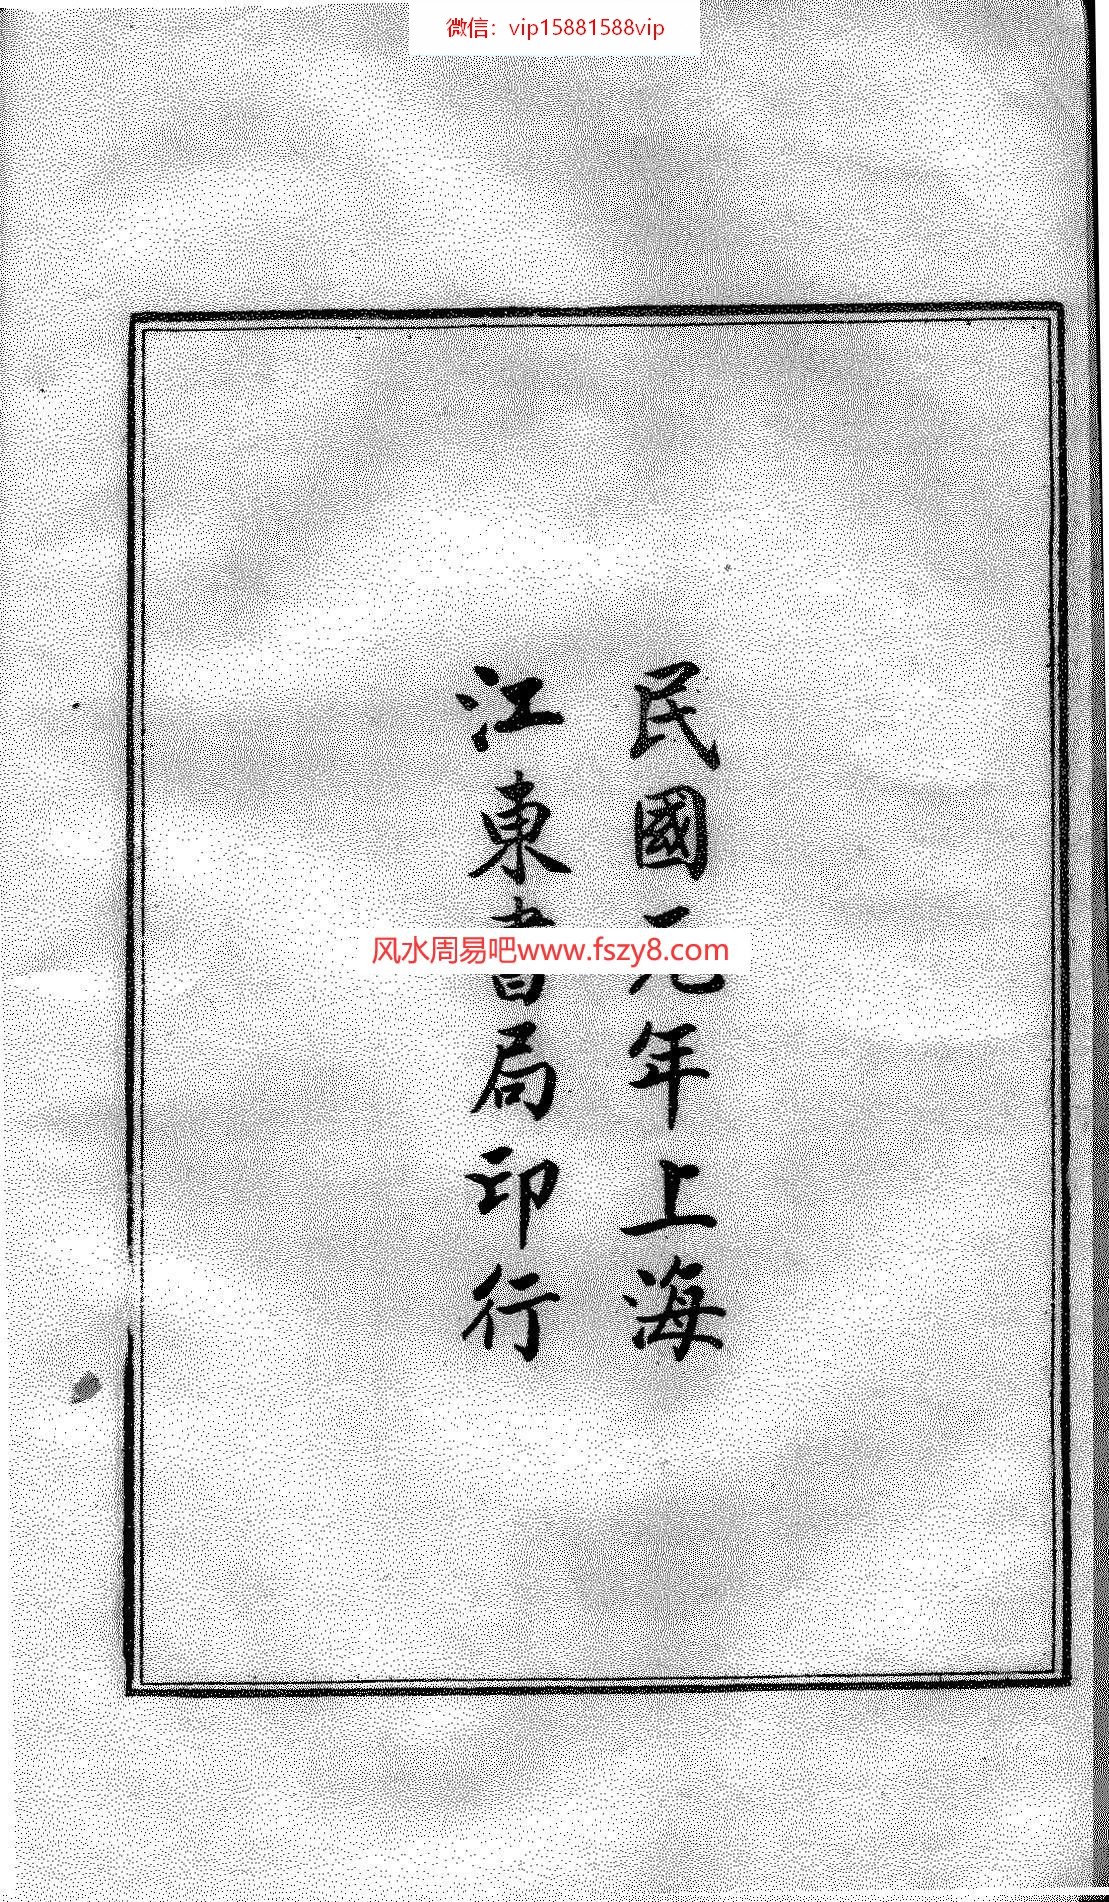 微信：vip15881588vip
民國元年上海
江東書局印行
风水周易吧www.fszy8.com